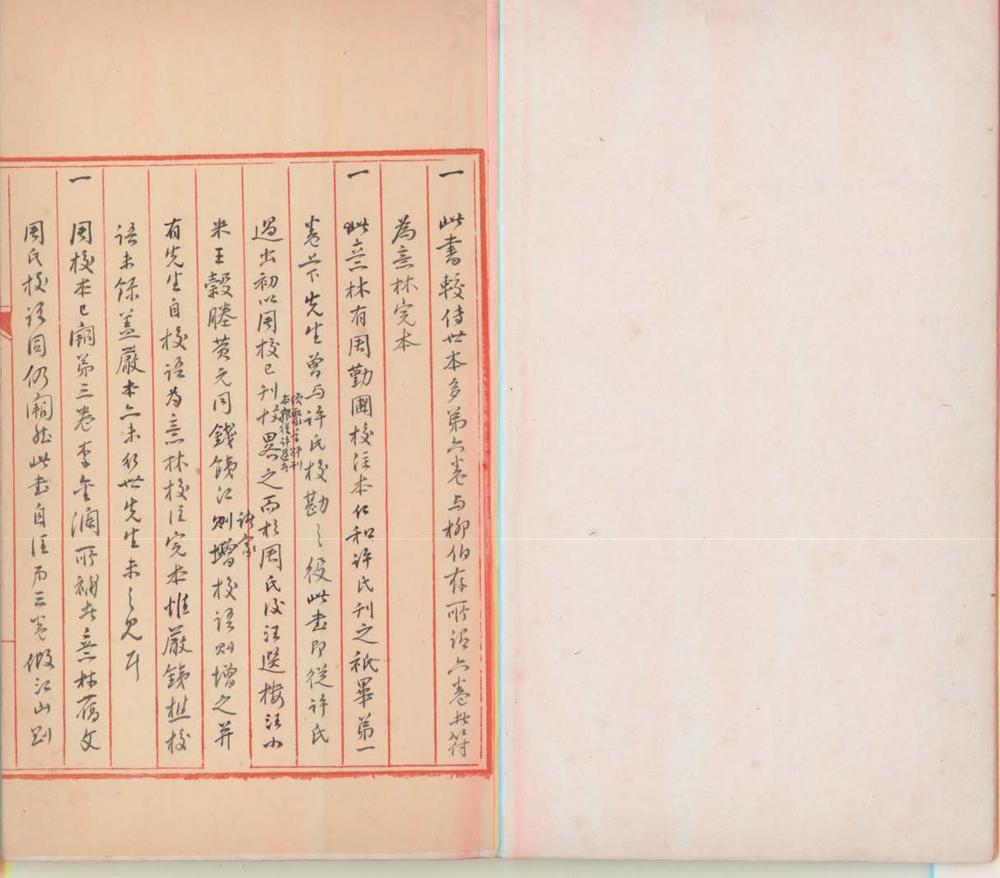 一 此書較傳世本多第六卷与柳伯存所謂六卷者符
為意林完本
一 此意林有周勤圃校注本仁和許氏刊之祇畢第一
卷上下先生曾与許氏校勘之役此書即從許氏
過出初以周校已刊校畧之而於周氏後汪選樓汪小
米王穀塍黄元同錢鐵江諸家則增校語則增之并
有先生自校語為意林校注完本惟嚴鐵橋校
語未録盖嚴本六未行世先生未之見耳
一 周校本已闕第三卷李金瀾所補者意林舊文
周氏校語同仍闕然此書自汪而三卷假江山劉